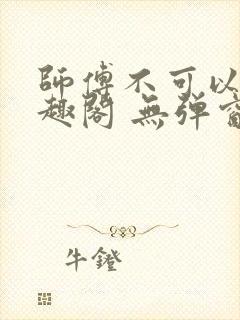 師傅不可以
趣閣 無彈窗
牛鐙